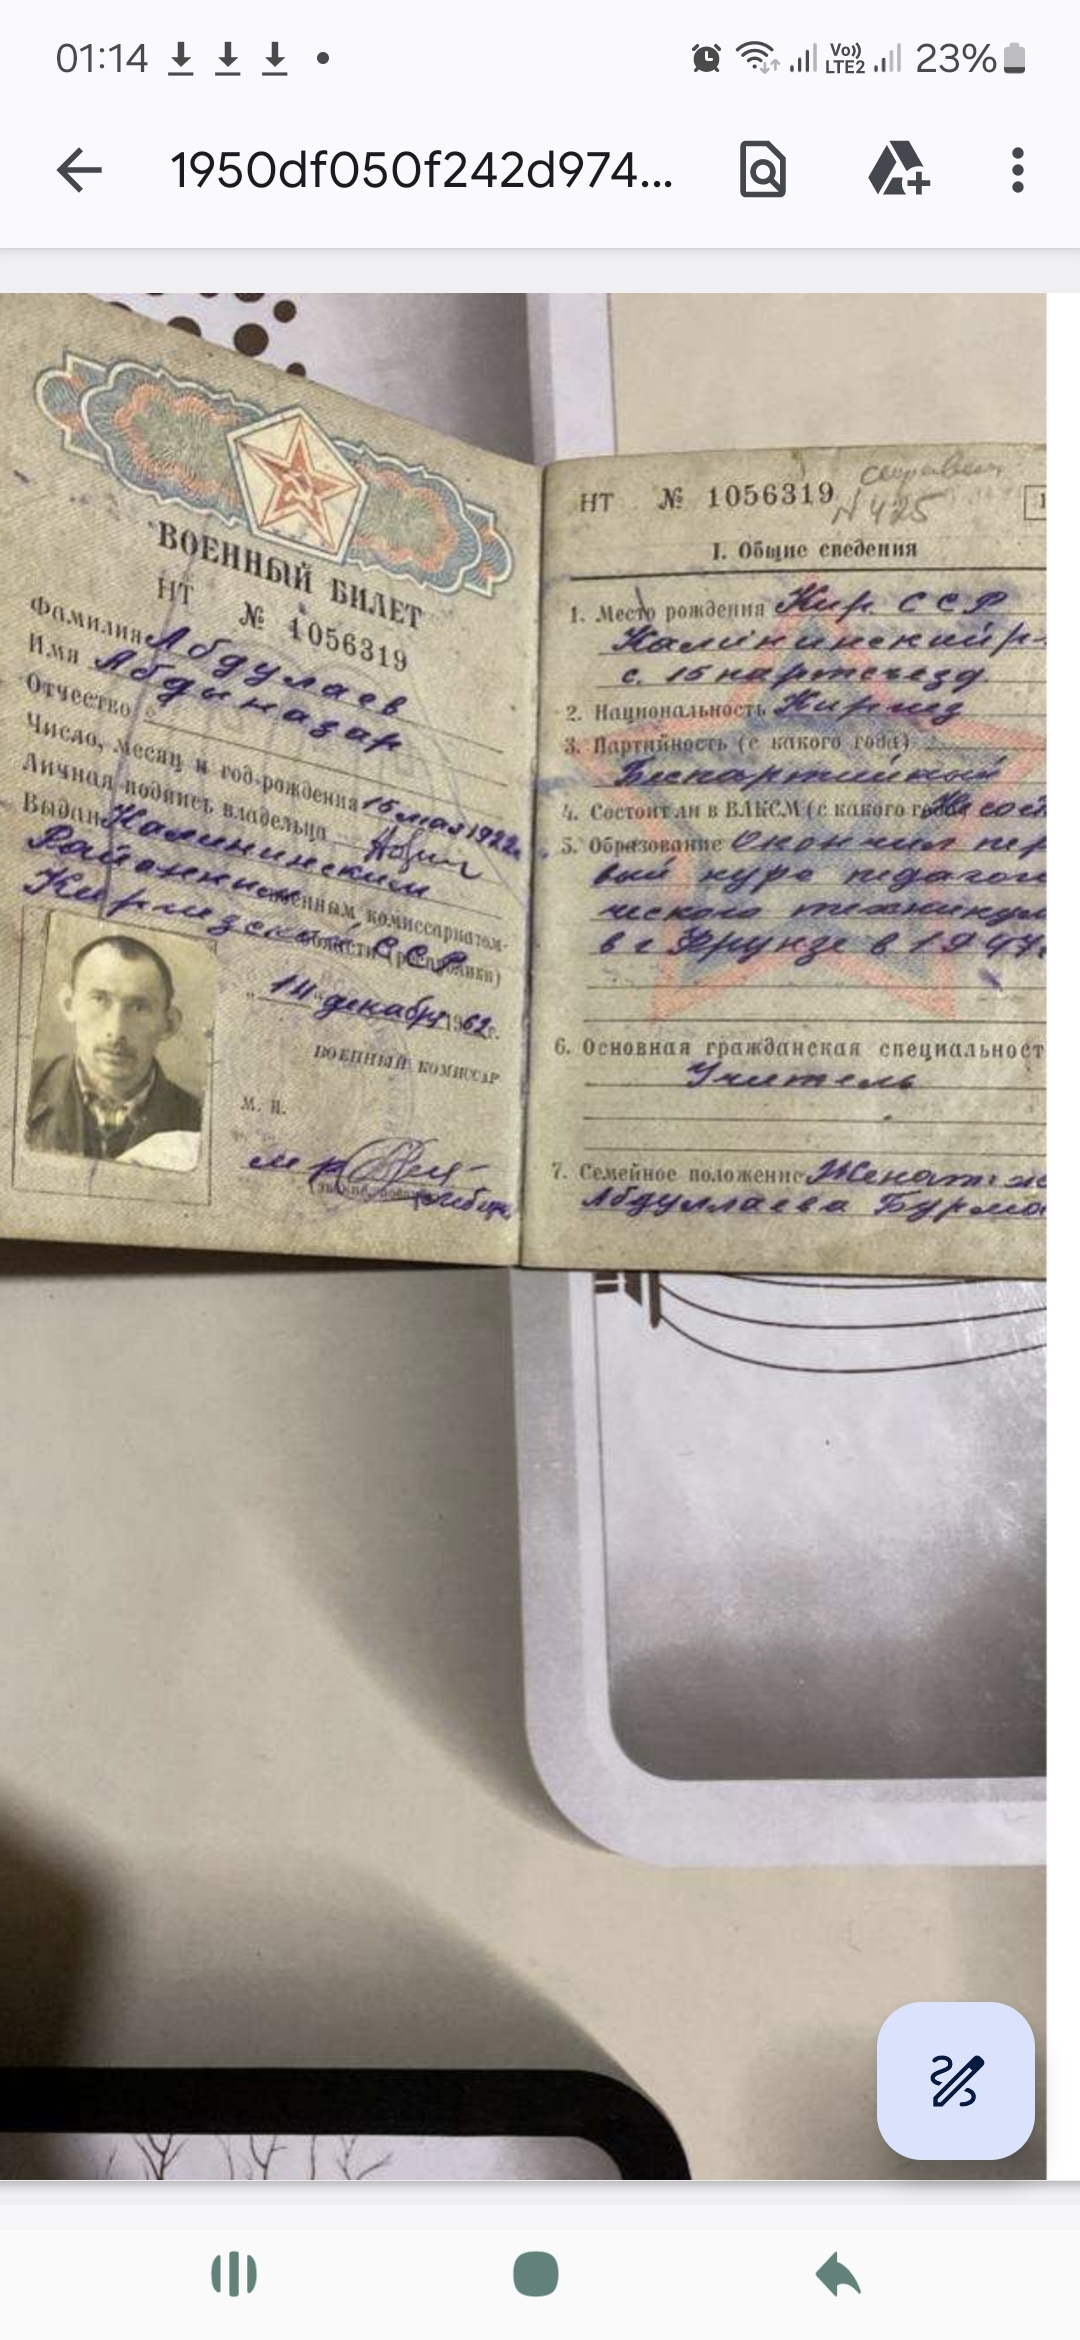 01:14
Vo)) LTE2 23%
1950df050f242d974...
ВОЕННЫЙ БИЛЕТ
НТ № 1056319
Фамилия Абдулаев
Имя Абдыназар
Отчество
Число, месяц и год рождения 15 мая 1922г.
Личная подпись владельца
Выдан Калининским
Районным военным комиссариатом
Киргизской ССР
области (республики)
"14" декабря 1962г.
ВОЕННЫЙ КОМИССАР
М. П.
НТ № 1056319
N 425
1
I. Общие сведения
1. Место рождения Кир. ССР
Калининский р-
с. 15 партсъезд
2. Национальность Киргиз
3. Партийность (с какого года)
Беспартийный
4. Состоит ли в ВЛКСМ (с какого года) Не сост
5. Образование Окончил пер
вый курс педагоги
ческого техникум
в г Фрунзе в 1947г
6. Основная гражданская специальност
Учитель
7. Семейное положение Женат: ж
Абдуллаева Бурма